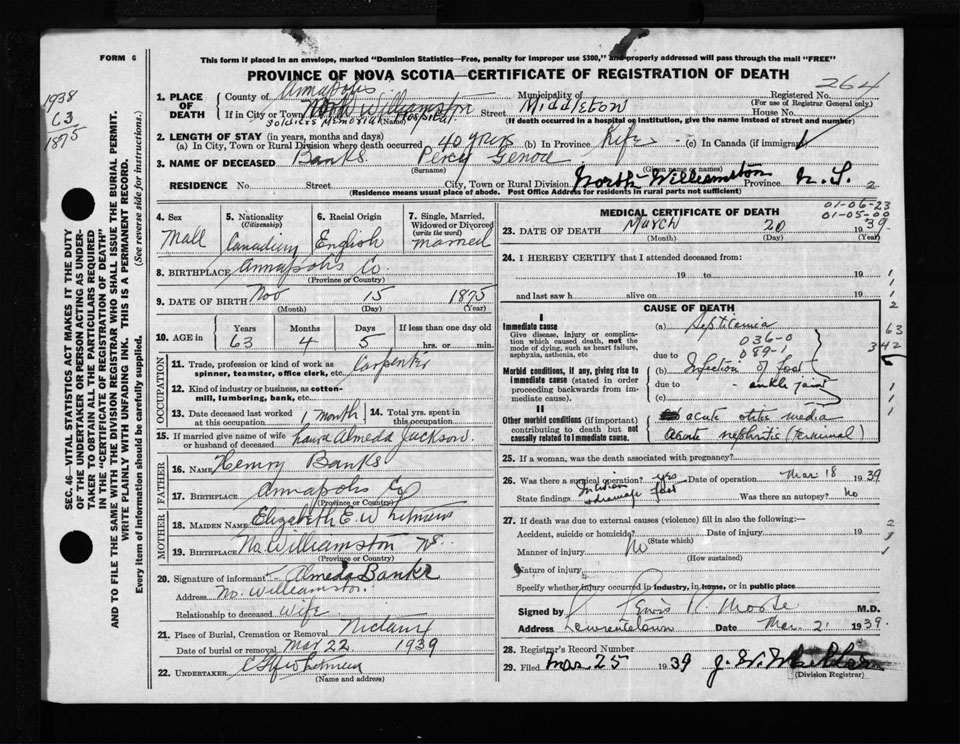 FORM 6
This form if placed in an envelope, marked "Dominion Statistics—Free, penalty for improper use $300," and properly addressed will pass through the mail "FREE"
PROVINCE OF NOVA SCOTIA—CERTIFICATE OF REGISTRATION OF DEATH
264
1938
63
1875
SEC. 46—VITAL STATISTICS ACT MAKES IT THE DUTY
OF THE UNDERTAKER OR PERSON ACTING AS UNDER-
TAKER TO OBTAIN ALL THE PARTICULARS REQUIRED
IN THE "CERTIFICATE OF REGISTRATION OF DEATH"
AND TO FILE THE SAME WITH THE DIVISION REGISTRAR WHO SHALL ISSUE THE BURIAL PERMIT.
WRITE PLAINLY WITH UNFADING INK. THIS IS A PERMANENT RECORD.
Every item of information should be carefully supplied. (See reverse side for instructions.)
1. PLACE OF DEATH
County of Annapolis Municipality of Registered No.
(For use of Registrar General only.)
If in City or Town North Williamston Middleton Street House No.
Soldiers Memorial Hospital (Name) (If death occurred in a hospital or institution, give the name instead of street and number)
2. LENGTH OF STAY (in years, months and days)
(a) In City, Town or Rural Division where death occurred 40 years (b) In Province Life (c) In Canada (if immigrant)
3. NAME OF DECEASED Banks Percy
(Surname) (Given name or names)
RESIDENCE No. Street City, Town or Rural Division North Williamston Province N.S. 2
(Residence means usual place of abode. Post Office Address for residents in rural parts not sufficient)
4. Sex Male
5. Nationality (Citizenship) Canadian
6. Racial Origin English
7. Single, Married, Widowed or Divorced (write the word) married
8. BIRTHPLACE Annapolis Co
(Province or Country)
9. DATE OF BIRTH Nov 15 1875
(Month) (Day) (Year)
10. AGE in Years 63 Months 4 Days 5 If less than one day old hrs. or min.
OCCUPATION
11. Trade, profession or kind of work as spinner, teamster, office clerk, etc. Carpenter
12. Kind of industry or business, as cotton-mill, lumbering, bank, etc.
13. Date deceased last worked at this occupation 1 month 14. Total yrs. spent in this occupation
15. If married give name of wife or husband of deceased Laura Almeda Jackson
FATHER
16. NAME Henry Banks
17. BIRTHPLACE Annapolis Co
(Province or Country)
MOTHER
18. MAIDEN NAME Elizabeth E. Whitman
19. BIRTHPLACE No. Williamston NS
(Province or Country)
20. Signature of informant Almeda Banks
Address No. Williamston.
Relationship to deceased Wife
21. Place of Burial, Cremation or Removal Nictaux
Date of burial or removal Mar 22 1939
22. UNDERTAKER
(Name and address)
MEDICAL CERTIFICATE OF DEATH
01-06-23
01-05-00
23. DATE OF DEATH March 20 1939
(Month) (Day) (Year)
24. I HEREBY CERTIFY that I attended deceased from:
19 to 19
and last saw h alive on 19
CAUSE OF DEATH
I
Immediate cause (a) Septicemia
Give disease, injury or complication which caused death, not the mode of dying, such as heart failure, asphyxia, asthenia, etc
036-0
089-1
due to
Morbid conditions, if any, giving rise to immediate cause (stated in order proceeding backwards from immediate cause). (b) Infection of foot
due to - ankle joint
(c)
II
Other morbid conditions (if important) contributing to death but not causally related to immediate cause.
acute otitis media
acute nephritis (terminal)
1
1
2
63
342
1
1
1
25. If a woman, was the death associated with pregnancy?
26. Was there a surgical operation? yes Date of operation Mar 18 1939
State findings Incision + drainage foot Was there an autopsy? No
27. If death was due to external causes (violence) fill in also the following:—
Accident, suicide or homicide? Date of injury 19
(State which)
Manner of injury No
(How sustained)
Nature of injury
Specify whether injury occurred in industry, in home, or in public place
2
1
Signed by Lewis R. Morse M.D.
Address Lawrencetown Date Mar. 21 1939.
28. Registrar's Record Number
29. Filed Mar. 25 1939
(Division Registrar)